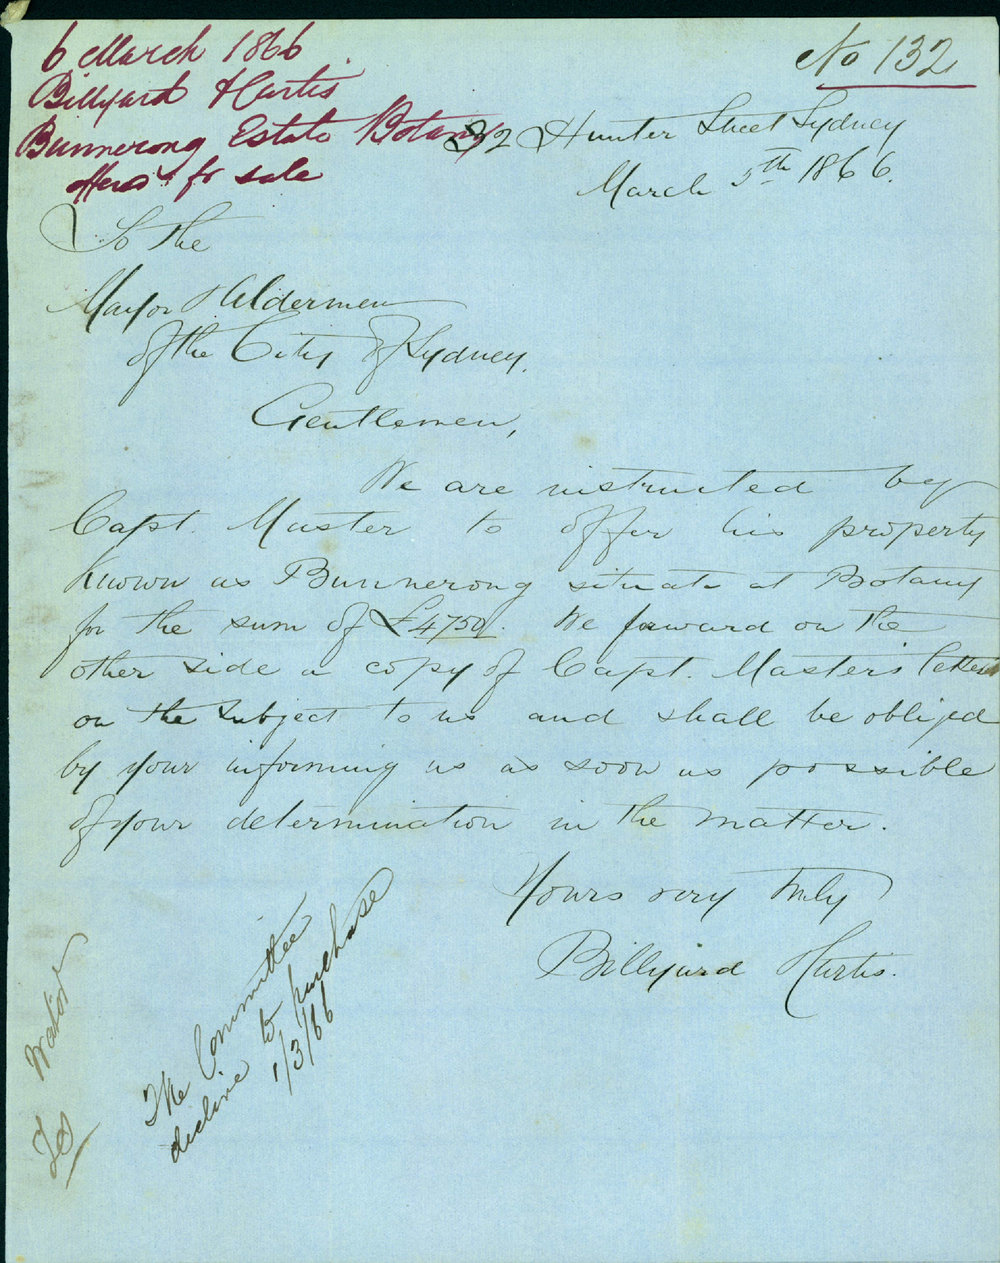 6 March 1866
Billyard & Curtis
Bunnerong Estate Botany
Offered for sale
No 132
32 Hunter Street Sydney
March 5th 1866.
To the
Mayor & Aldermen
of the City of Sydney.
Gentlemen,
We are instructed by
Capt. Master to offer his property
known as Bunnerong situate at Botany
for the sum of £4750. We forward on the
other side a copy of Capt. Master's letter
on the subject to us and shall be obliged
by your informing us as soon as possible
of your determination in the matter.
Yours very truly
Billyard & Curtis.
The Committee
decline to purchase
1/3/66